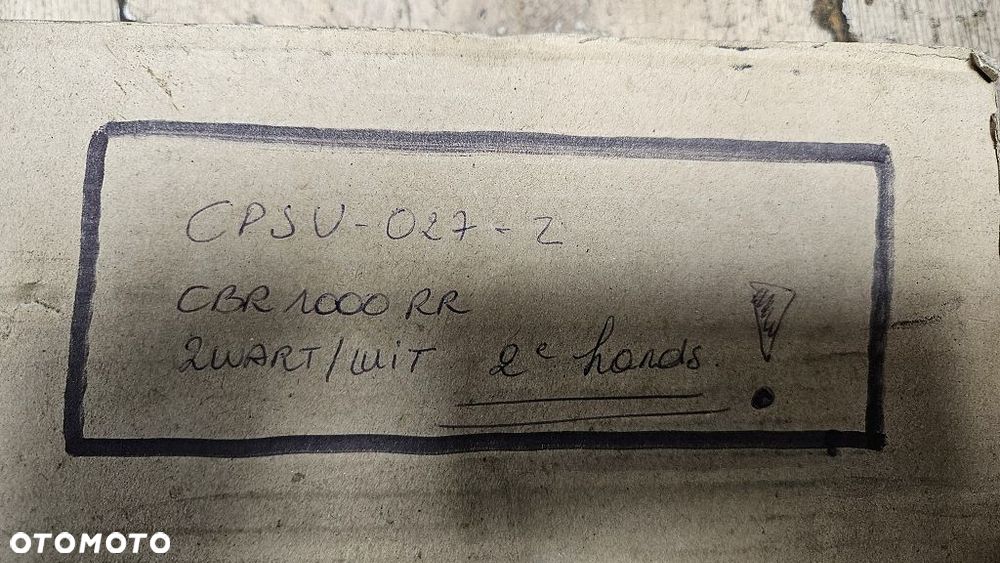 CPSV-027-Z
CBR 1000 RR
ZWART/WIT 2e hands.
OTOMOTO